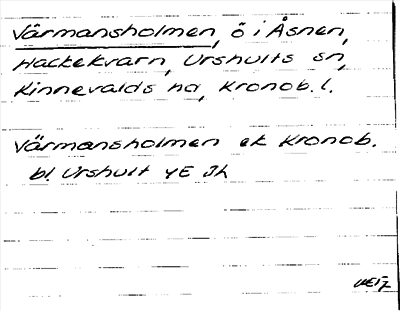 Värmansholmen, ö i Åsnen,
Hackekvarn, Urshults sn,
Kinnevalds hd, Kronob. l.
Värmansholmen ek Kronob.
bl. Urshult 4E Jh